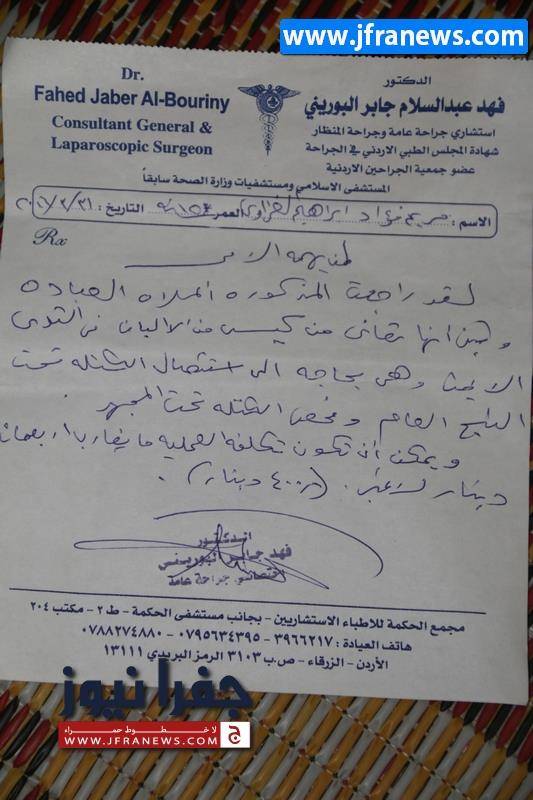 www.jfranews.com
Dr.
Fahed Jaber Al-Bouriny
Consultant General &
Laparoscopic Surgeon
الدكتور
فهد عبدالسلام جابر البوريني
استشاري جراحة عامة وجراحة المنظار
شهادة المجلس الطبي الاردني في الجراحة
عضو جمعية الجراحين الاردنية
المستشفى الاسلامي ومستشفيات وزارة الصحة سابقاً
الاسم : مريم فؤاد ابراهيم العمر : التاريخ :
Rx
لمن يهمه الامر
لقد راجعت المذكوره اعلاه العياده
وتبين انها تعاني من كيس من الالبان في الثدي
الايمن وهي بحاجه الى استئصال الكتله تحت
البنج العام وفحص الكتله تحت المجهر.
ويمكن أن تكون تكلفه العمليه ما يقارب اربعمائة
دينار لا غير. (٤٠٠ دينار).
الدكتور
فهد جابر البوريني
اختصاصي جراحة عامة
مجمع الحكمة للاطباء الاستشاريين - بجانب مستشفى الحكمة - ط ٢ - مكتب ٢٠٤
هاتف العيادة : ٣٩٦٦٢١٧ - ٠٧٩٥٦٣٤٣٩٥ - ٠٧٨٨٢٧٤٨٨٠
الأردن - الزرقاء - ص.ب ٣١٠٣ الرمز البريدي ١٣١١١
جفرا نيوز
لا خطوط حمراء
WWW.JFRANEWS.COM